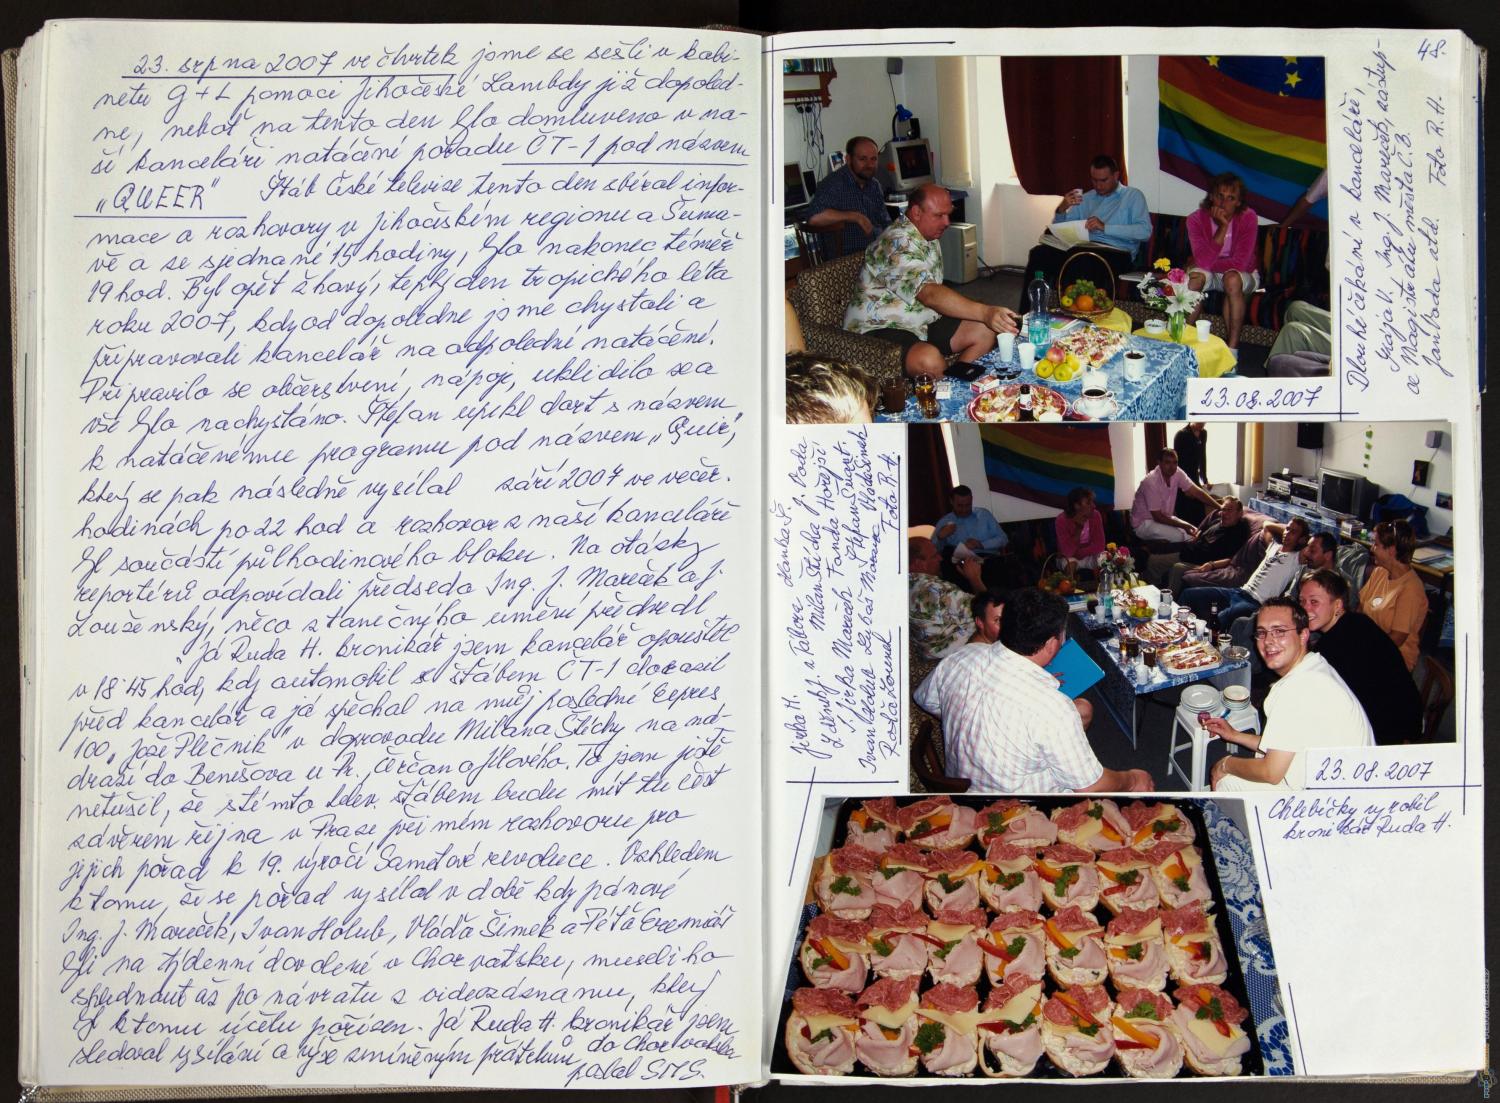 23. srpna 2007 ve čtvrtek jsme se sešli v kabi-
netu G+L pomoci Jihočeské Lambdy již dopoled-
ne, neboť na tento den bylo domluveno v na-
ší kanceláři natáčení pořadu ČT-1 pod názvem
„QUEER“ Štáb České televise tento den sbíral infor-
mace a rozhovory v Jihočeském regionu a Šuma-
vě a ze sjednané 15 hodiny, bylo nakonec téměř
19 hod. Byl opět žhavý, teplý den tropického léta
roku 2007, kdy od dopoledne jsme chystali a
připravovali kancelář na odpolední natáčení.
Připravilo se občerstvení, nápoje, uklidilo se a
vše bylo nachystáno. Štefan upekl dort s názvem
k natáčenému programu pod názvem „Queer“,
který se pak následně vysílal září 2007 ve večer.
hodinách po 22 hod a rozhovor z naší kanceláře
byl součástí půlhodinového bloku. Na otázky
reportérů odpovídali předseda Ing. J. Mareček a J.
Louženský, něco z tanečného umění předvedl
Já Ruda H. kronikář jsem kancelář opouštěl
v 18'45 hod, kdy automobil se štábem ČT-1 dorazil
před kancelář a já spěchal na můj poslední Expres
100 „Jože Plečnik“ v doprovodu Milana Štíchy na ná-
draží do Benešova u Pr., Čerčan a Jílového. To jsem ještě
netušil, že s tímto telev. štábem budu mít tu čest
závěrem října v Praze při mém rozhovoru pro
jejich pořad k 19. výročí Sametové revoluce. Vzhledem
k tomu, že se pořad vysílal v době kdy pánové
Ing. J. Mareček, Ivan Holub, Vláďa Šimek a Péťa
byli na týdenní dovolené v Chorvatsku, museli ho
shlédnout až po návratu z videozáznamu, který
byl k tomu účelu pořízen. Já Ruda H. kronikář jsem
sledoval vysílání a výše zmíněným přátelům do Chorvatska
poslal SMS.
48.
Dlouhé čekání v kanceláři,
Grája V. Ing. J. Mareček, zástup-
ce Magistrátu města Č.B.
Jan Voda atd. Foto R.H.
23.08.2007
Jirka H. z Tábora Hanka Š.
Ladění J. Milan Štícha J. Voda
Jirka Mareček Tonda Horejší
Ivan Holub Luboš Štefan
Foto R.H.
23.08.2007
Chlebíčky vyrobil
kronikář Ruda H.